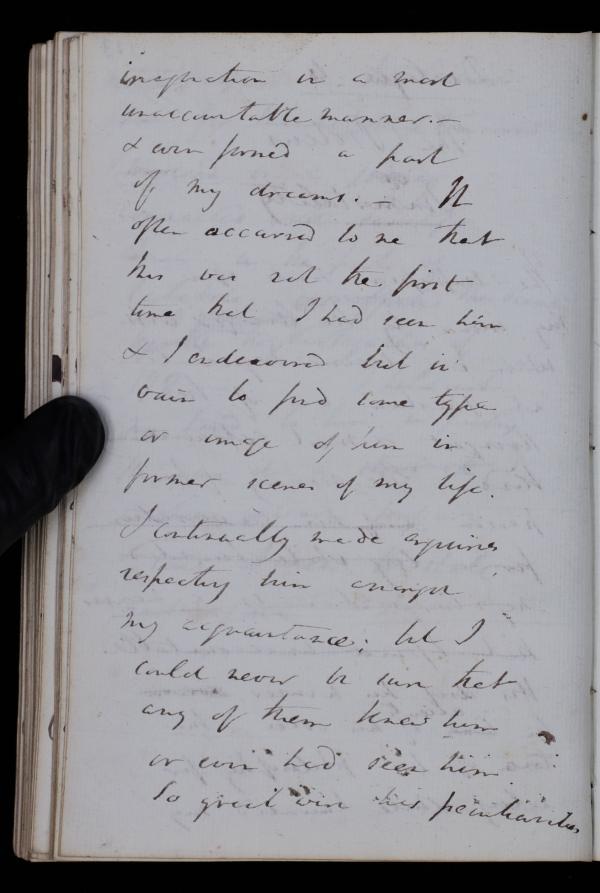 imagination in a most
unaccountable manner. —
& even formed a part
of my dreams. — It
often occurred to me that
this was not the first
time that I had seen him
& I endeavoured but in
vain to find some type
or image of him in
former scenes of my life.
I continually made enquiries
respecting him amongst
my acquaintance; but I
could never be sure that
any of them knew him
or even had seen him
So great were his peculiarities